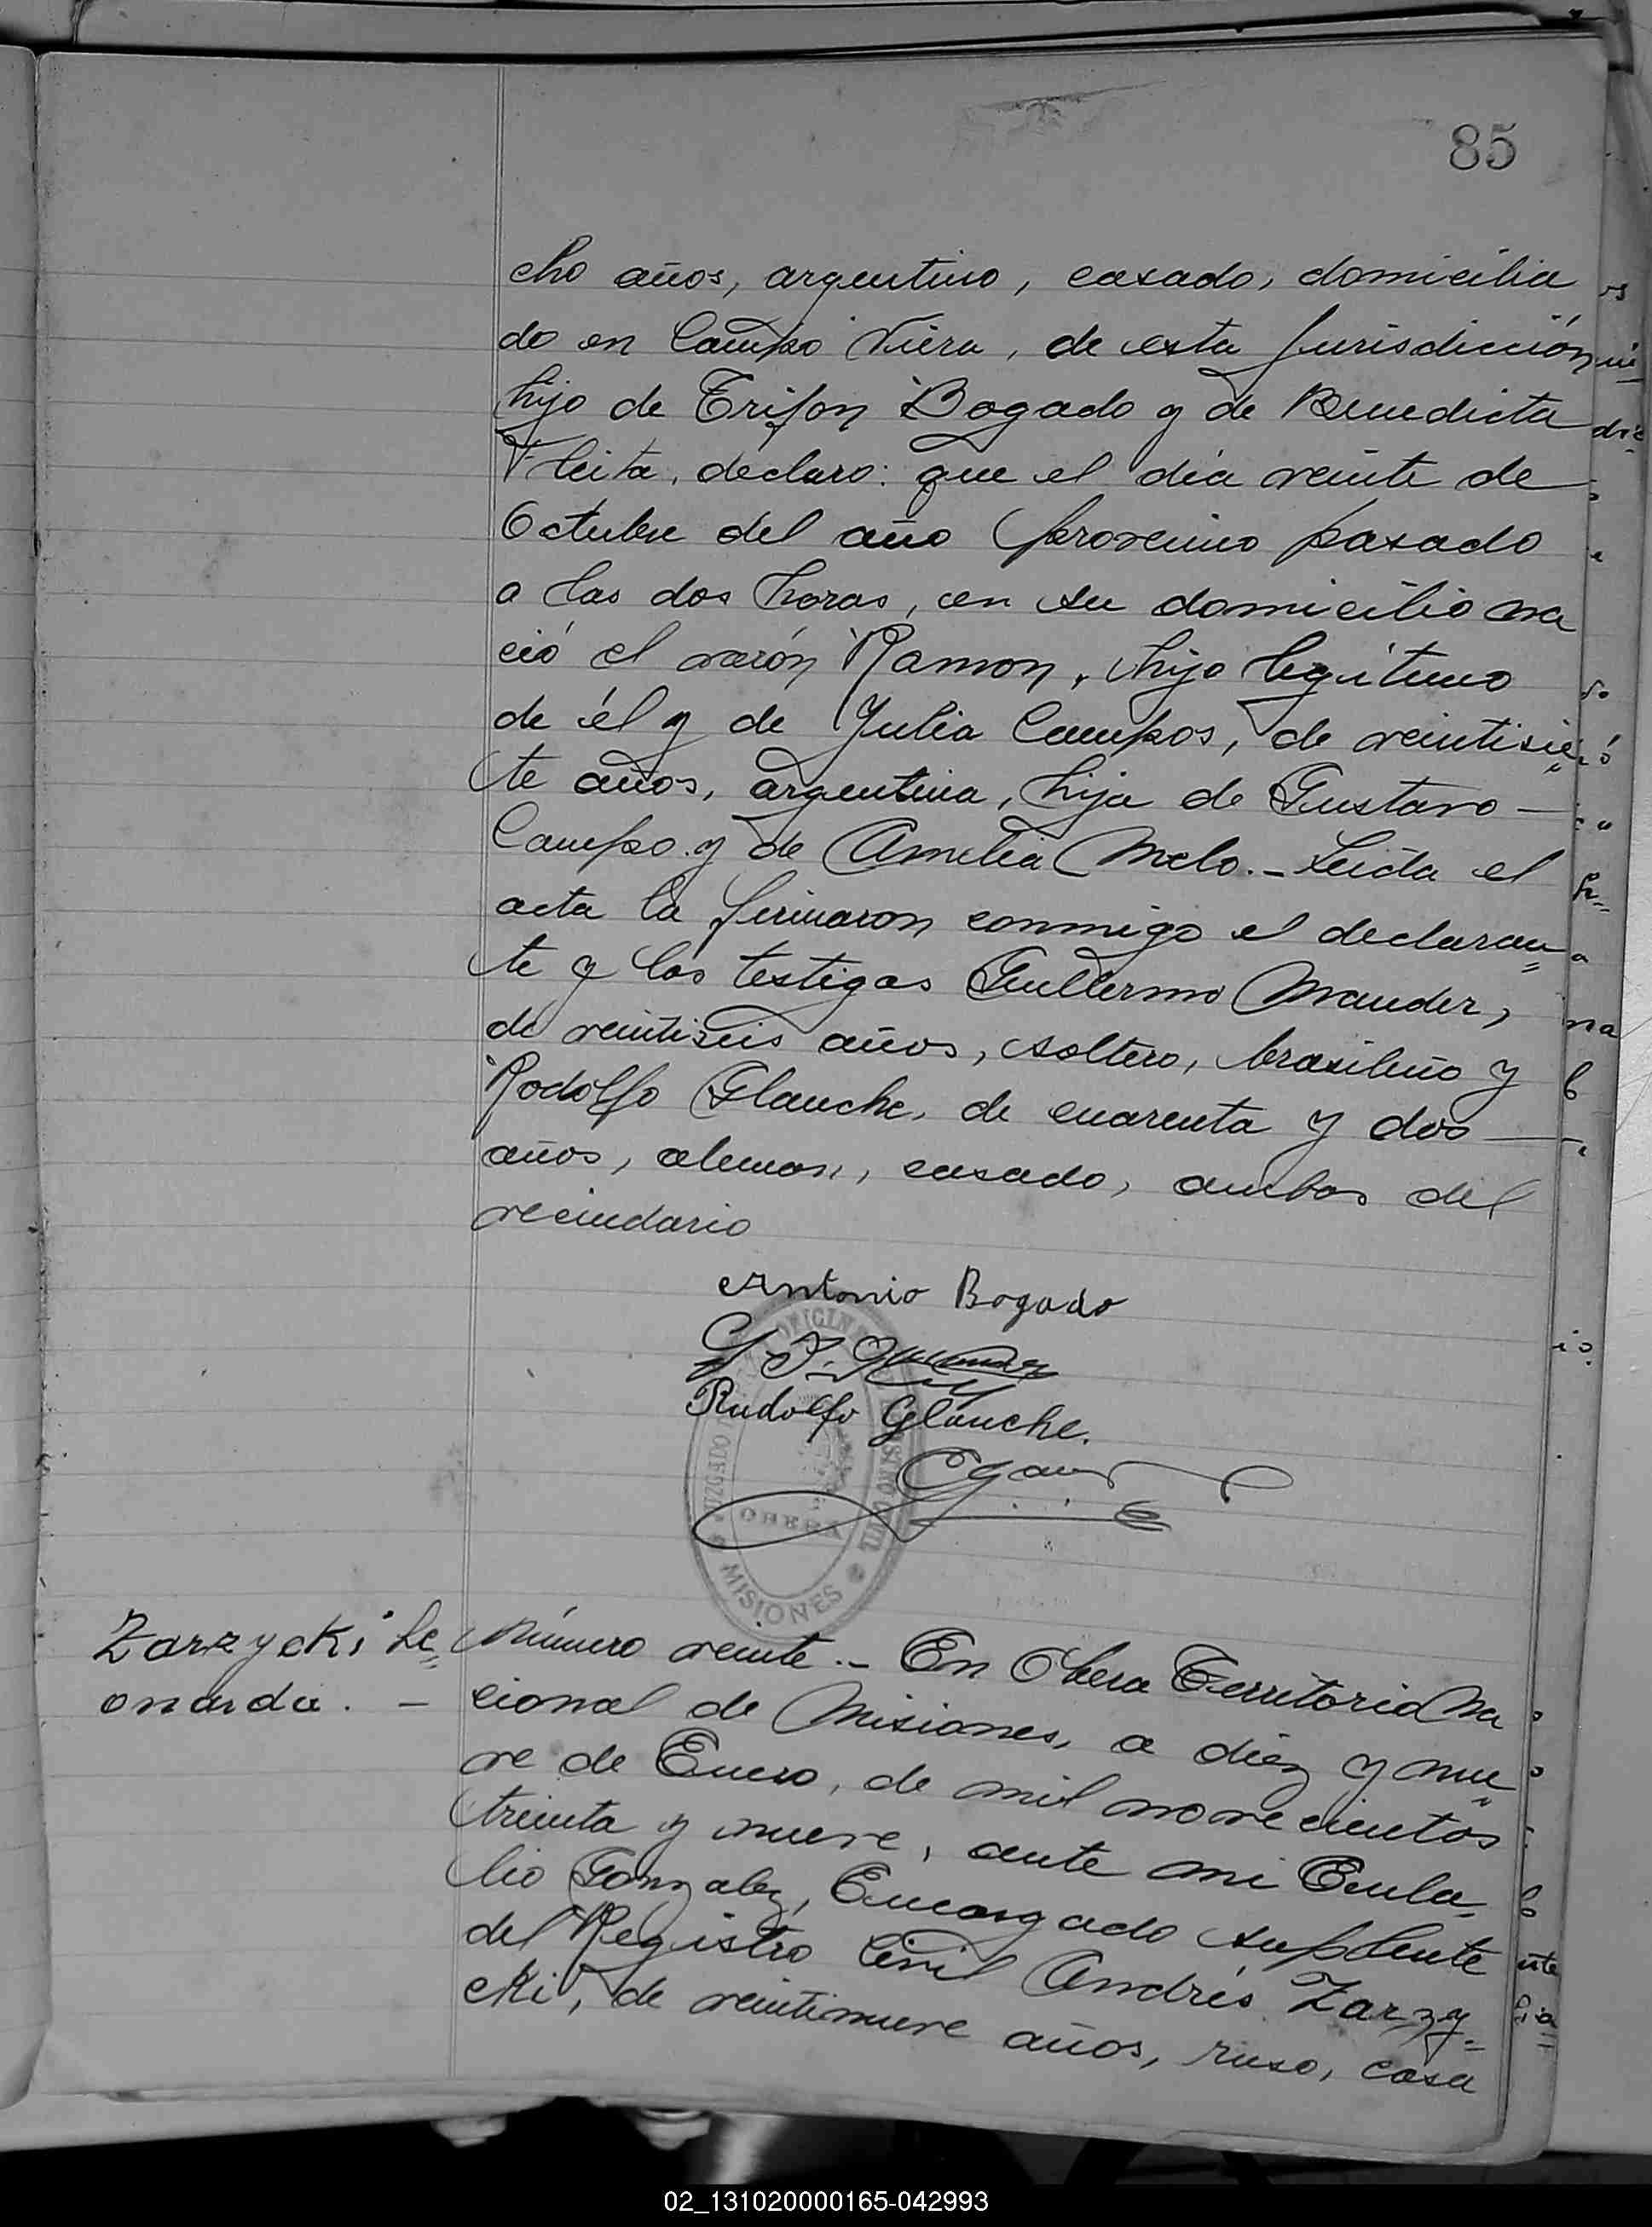 85
cho años, argentino, casado, domicilia
do en Campo Viera, de esta Jurisdicción
hijo de Trifon Bogado y de Benedicta
Fleita, declaro: que el día veinte de
Octubre del año proximo pasado
a las dos horas, en su domicilio na
ció el varón Ramon, hijo legitimo
de él y de Julia Campos, de veintisie
te años, argentina, hija de Gustavo —
Campo y de Amelia Melo. – Leida el
acta la firmaron conmigo el declaran=
te y los testigos Guillermo Mander,
de veintiseis años, soltero, brasileño y
Rodolfo Glauche, de cuarenta y dos —
años, aleman, casado, ambos del
vecindario
Antonio Bogado
Rudolfo Glauche.
OBERA
MISIONES
Zarzycki Le=
onarda. –
Número veinte. – En Obera Territorio Na
cional de Misiones, a diez y nue
ve de Enero, de mil novecientos
treinta y nueve, ante mi Eula=
lio Gonzalez, Encargado Suplente
del Registro Civil Andrés Zarzy=
cki, de veintinueve años, ruso, casa
02_131020000165-042993